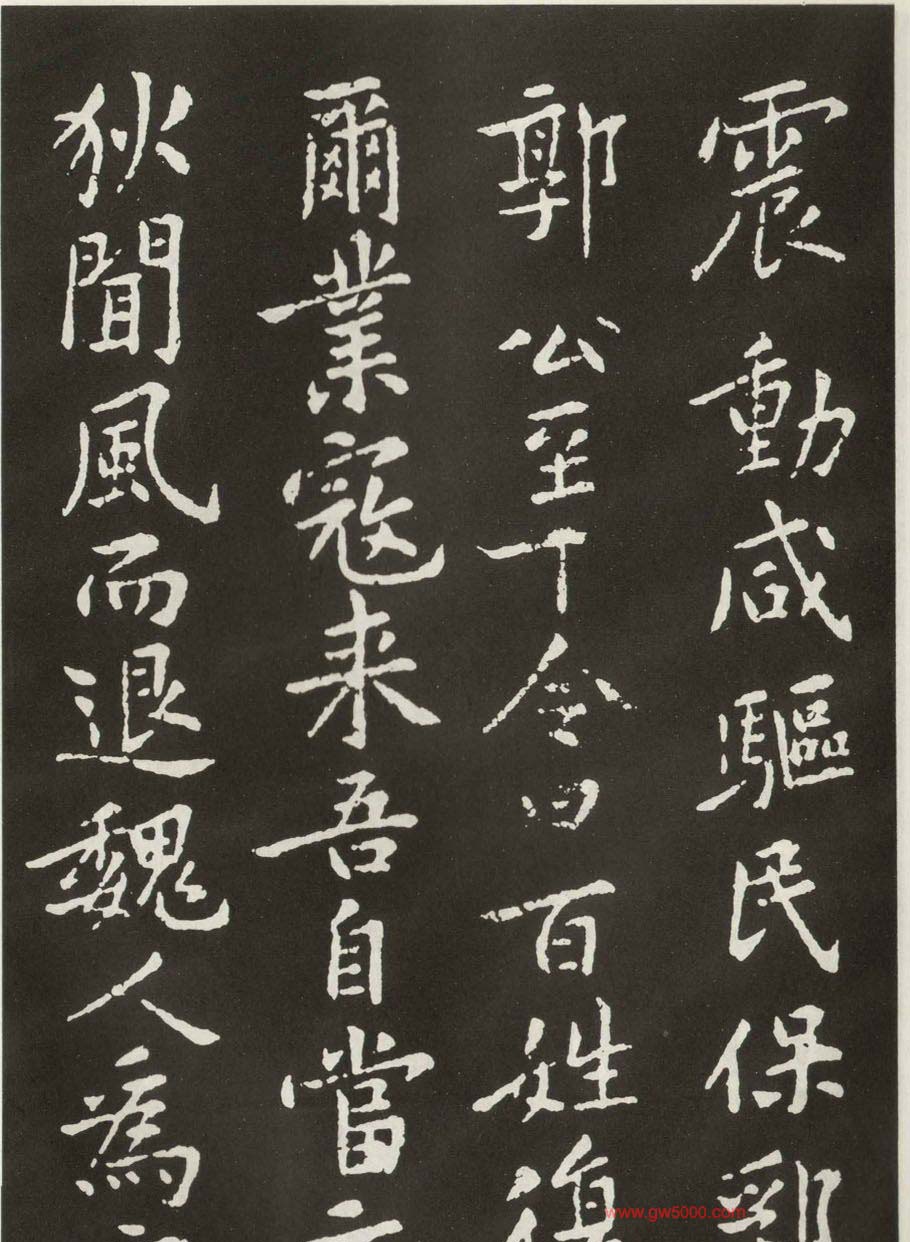 震動咸驅民保郭
郭公至下令曰百姓復
爾業寇来吾自當
狄聞風而退魏人為
www.gw5000.com